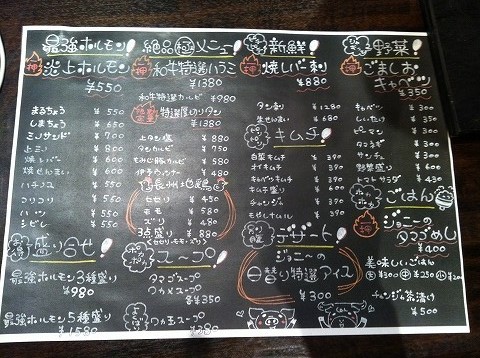 最強ホルモン!
炎上ホルモン
¥550
まるちょう ¥550
しまちょう ¥650
ミノサンド ¥700
上ミノ ¥800
焼レバー ¥600
焼せんまい ¥600
ハチノス ¥550
コリコリ ¥550
ハツ ¥550
シビレ ¥550
盛り合せ!
最強ホルモン3種盛り
¥980
最強ホルモン5種盛り
¥1580
絶品メニュー!
押 和牛特選ハラミ
¥1380
和牛特選カルビ ¥980
特選厚切りタン
¥1380
上タン塩 ¥880
タンカルビ ¥750
もみじ豚カルビ ¥580
伊予ウィンナー ¥480
長州地鶏
セセリ ¥450
モモ ¥580
ズリ ¥480
3点盛り ¥880
(セセリ・モモ・ズリ)
スープ!
タマゴスープ
ワカメスープ
各¥350
ワカ玉スープ
¥380
新鮮!
押 焼レバ刺
¥880
タン刺し ¥1280
生せんまい ¥680
キムチ!
白菜キムチ ¥390
オイキムチ ¥390
キャベツキムチ ¥390
キムチ盛り ¥600
チャンジャ ¥390
もやしナムル ¥390
デザート!
ジョニーの
日替り特選アイス
¥300
野菜!
押 ごましお
キャベツ
¥350
キャベツ ¥300
しいたけ ¥350
ピーマン ¥300
タマネギ ¥300
サンチュ ¥300
野菜盛り ¥600
ごはん
ジョニーの
タマごめし
¥400
美味しいごはん
大¥300 中¥250 小¥200
チャンジャ茶漬け
¥500